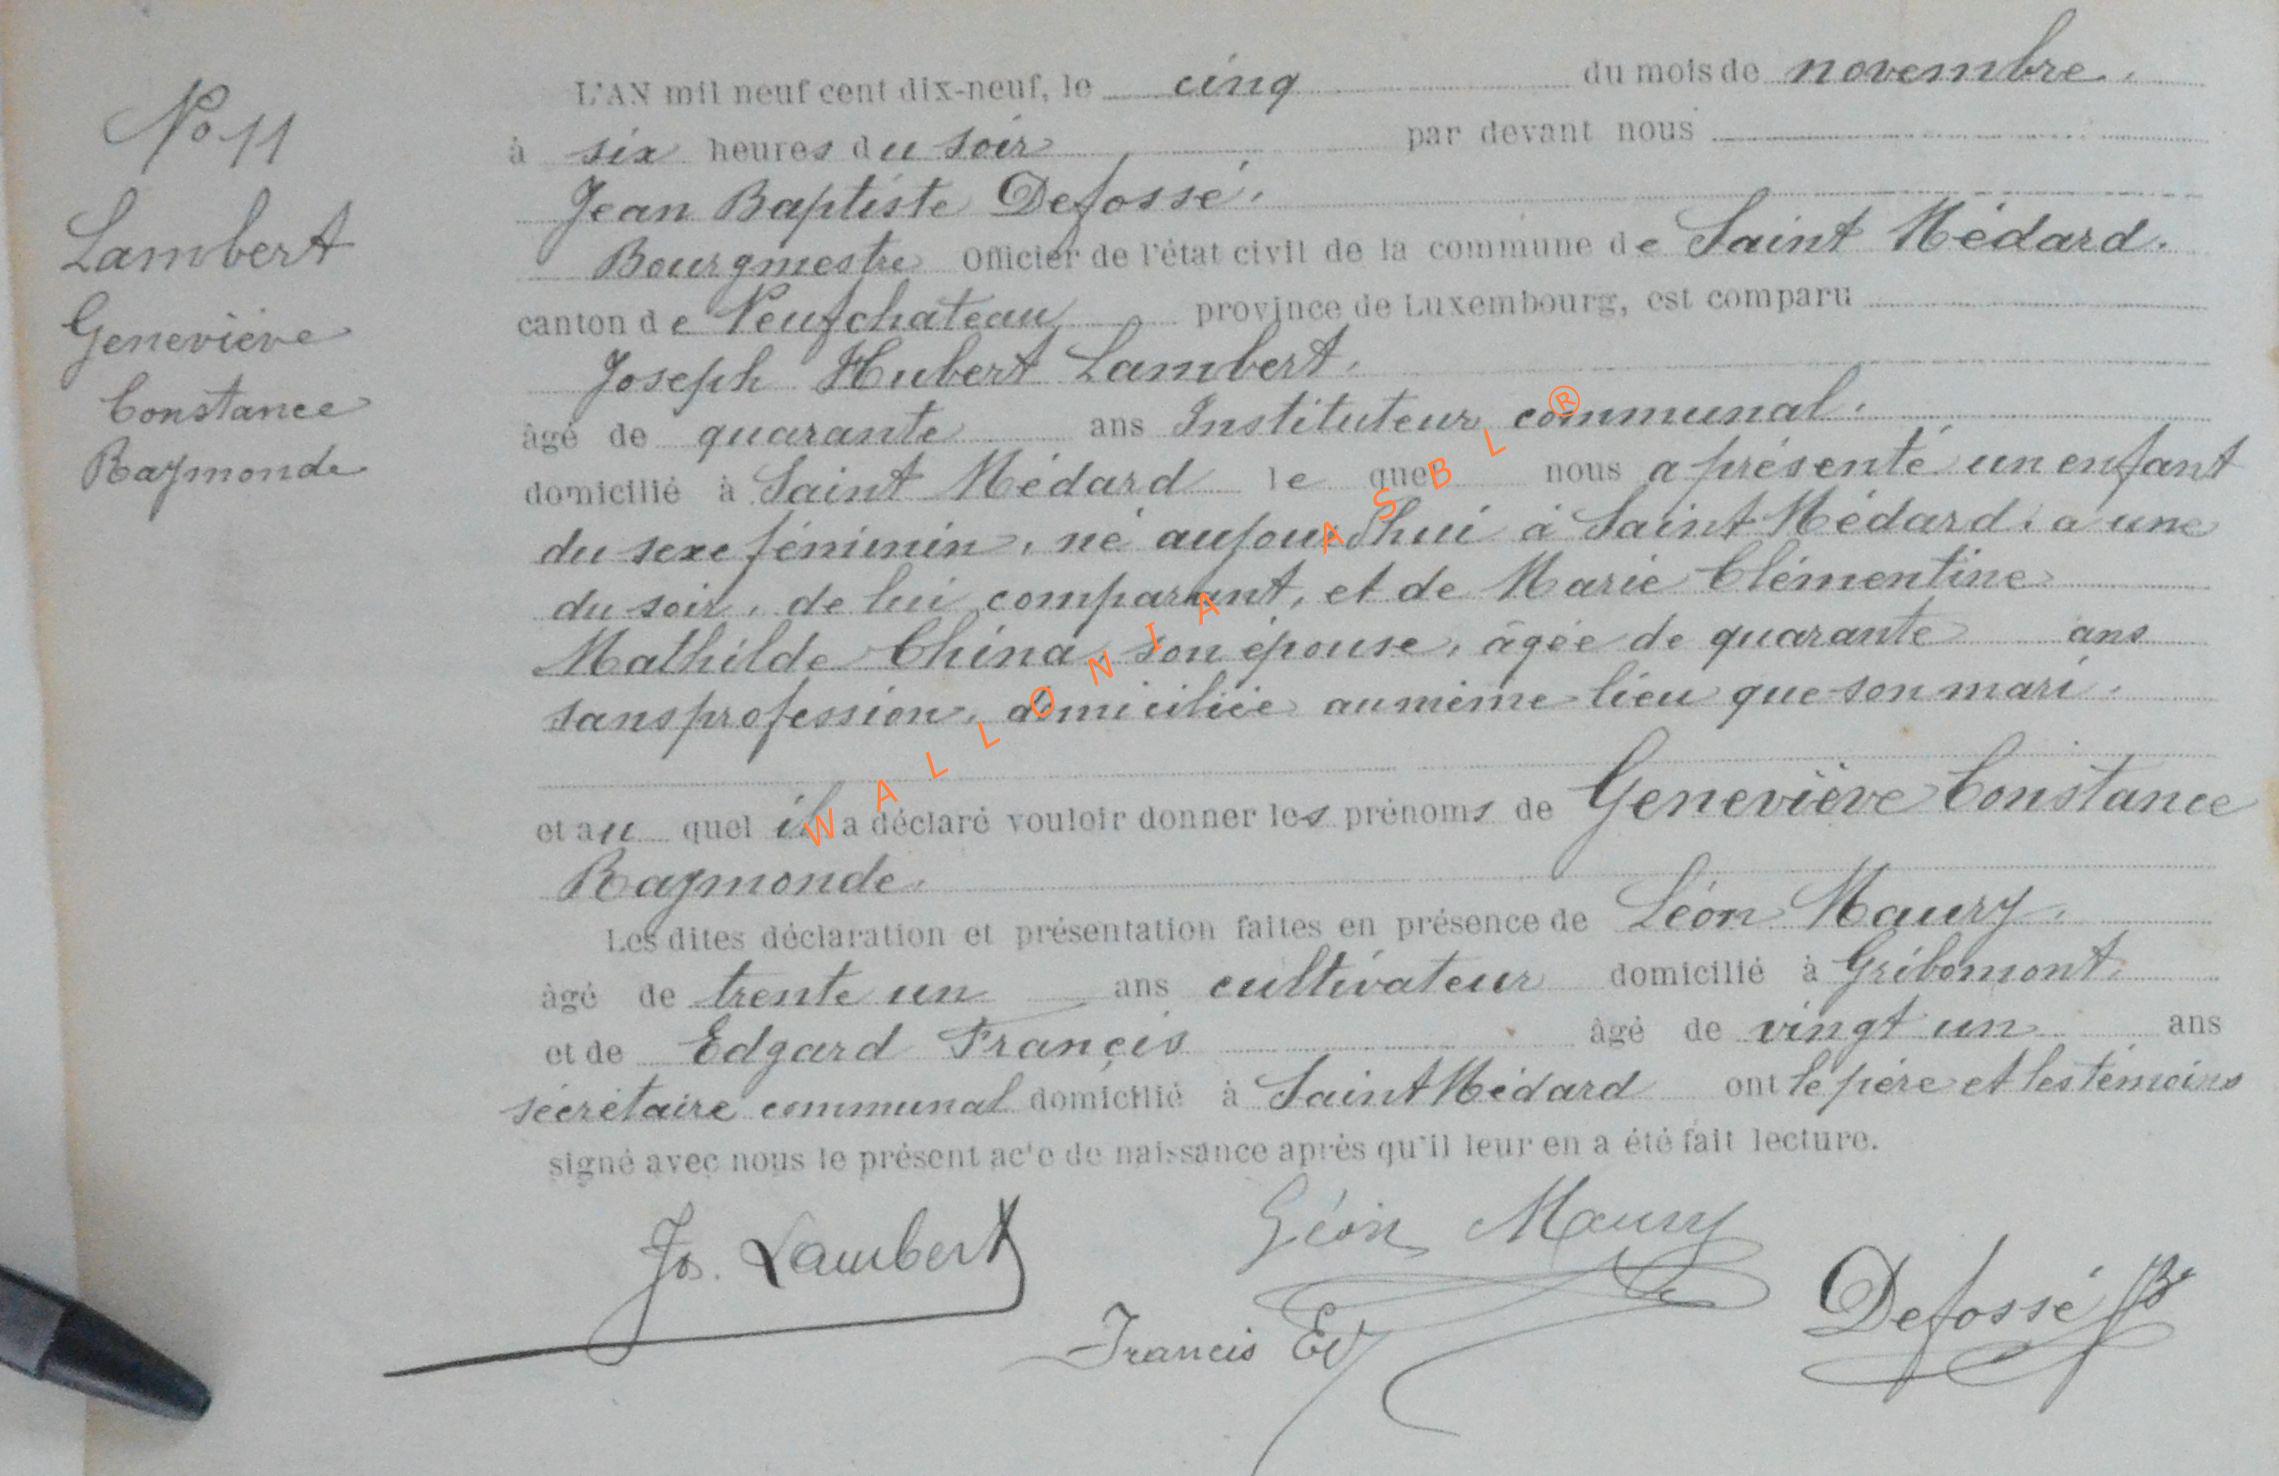 No 11
Lambert
Geneviève
Constance
Raymonde
L'AN mil neuf cent dix-neuf, le cinq du mois de novembre.
à six heures du soir par devant nous
Jean Baptiste Defossé.
Bourgmestre Officier de l'état civil de la commune de Saint Médard.
canton de Neufchateau province de Luxembourg, est comparu
Joseph Hubert Lambert.
âgé de quarante ans Instituteur communal.
domicilié à Saint Médard le quel nous a présenté un enfant
du sexe féminin, né aujourd'hui à Saint Médard, a une
du soir, de lui comparant, et de Marie Clémentine
Mathilde China, son épouse, âgée de quarante ans
sans profession, domiciliée au même lieu que son mari.
et au quel il a déclaré vouloir donner les prénoms de Geneviève Constance
Raymonde.
Les dites déclaration et présentation faites en présence de Léon Maury.
âgé de trente un ans cultivateur domicilié à Gribomont.
et de Edgard Françis âgé de vingt un ans
sécrétaire communal domicilié à Saint Médard ont le père et les témoins
signé avec nous le présent acte de naissance après qu'il leur en a été fait lecture.
Jos. Lambert
Léon Maury
Francis Ed
Defossé
WALLONIA ASBL ®